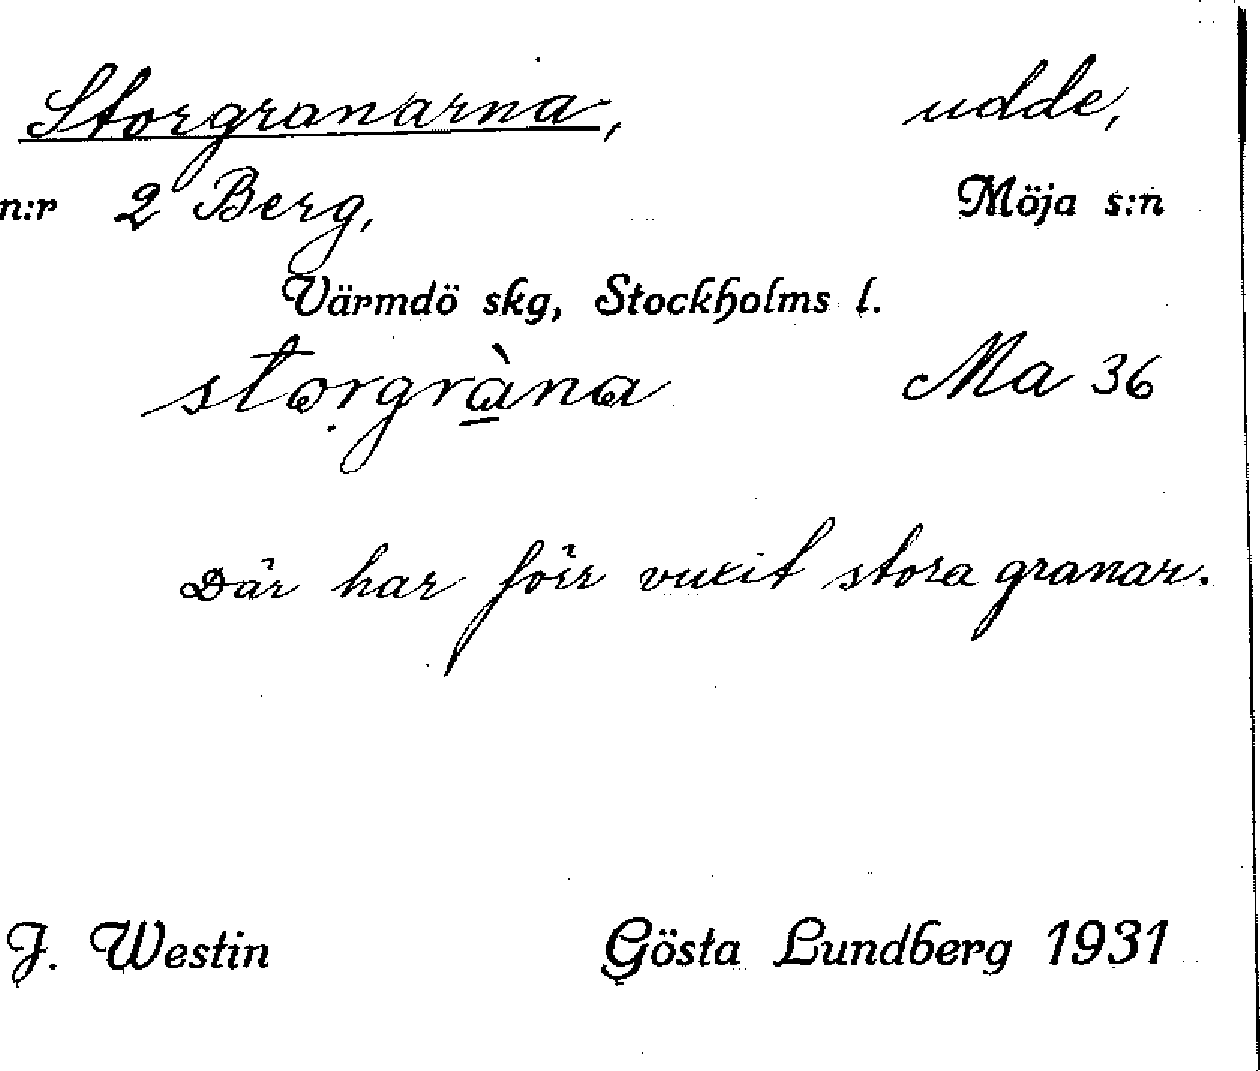 Storgranarna, udde,
n:r 2 Berg, Möja s:n
Värmdö skg, Stockholms l.
storgràna Ma 36
Där har förr vuxit stora granar.
J. Westin Gösta Lundberg 1931